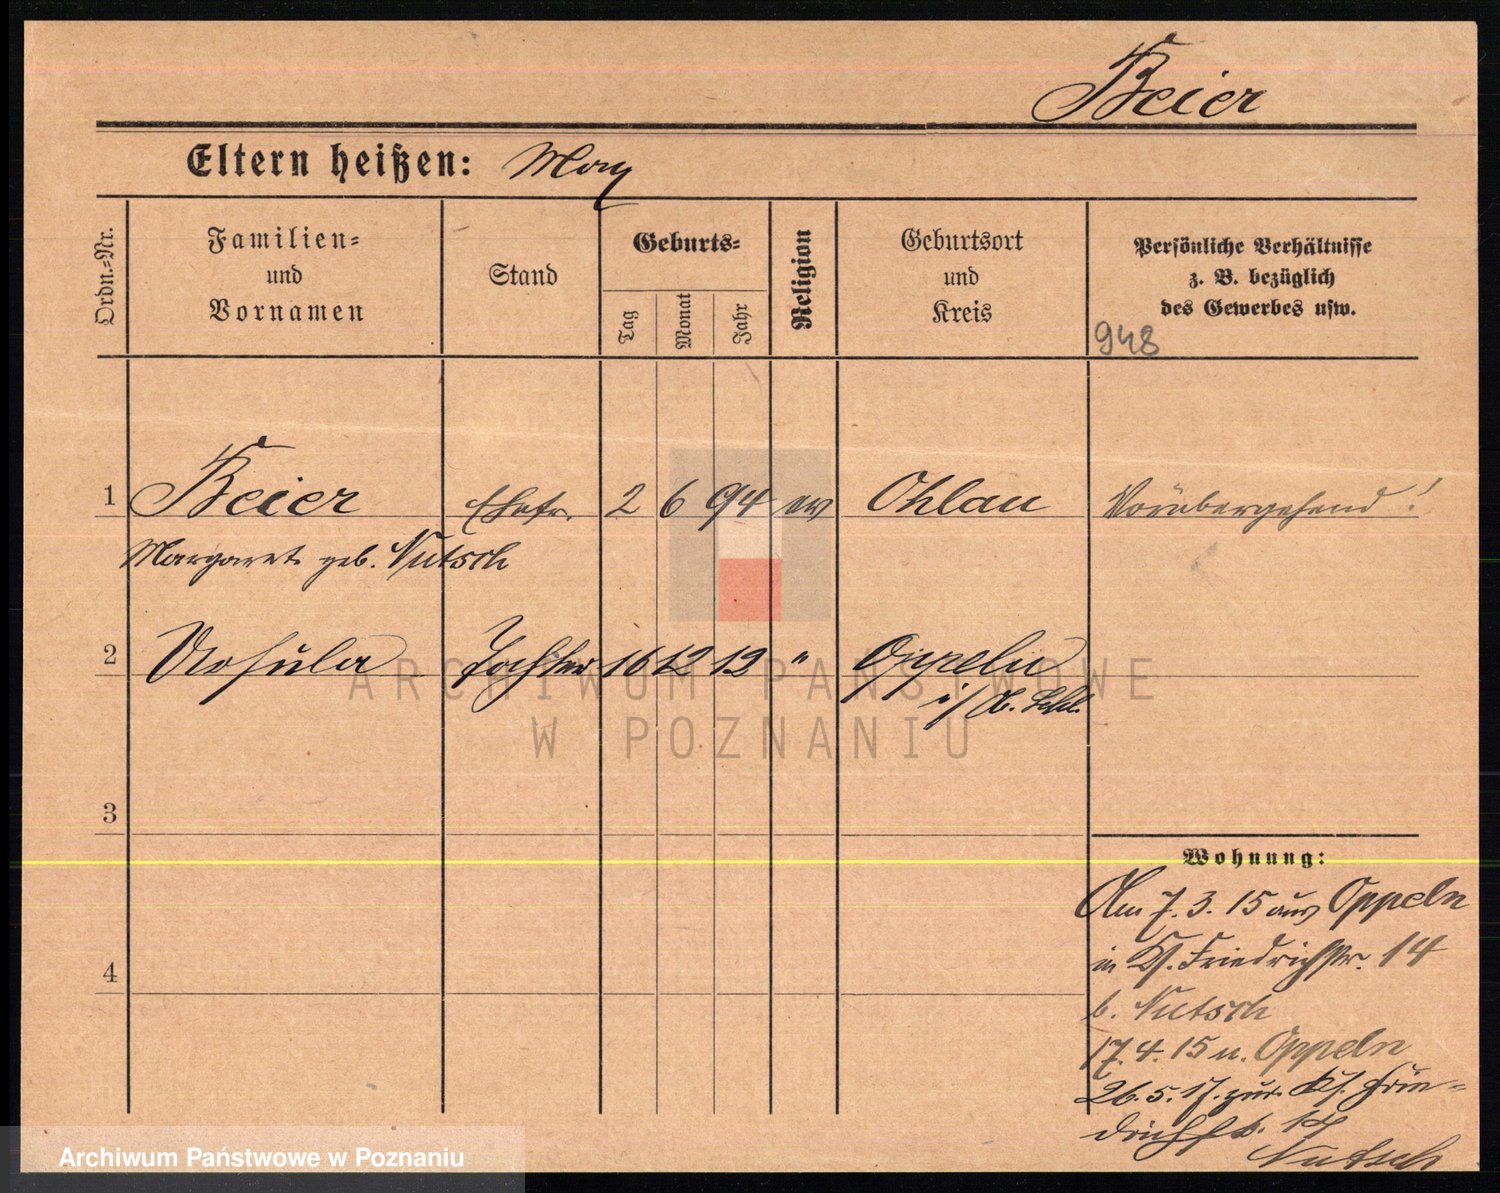 Beier
Eltern heißen: May
Ordn.-Nr.
Familien-
und
Vornamen
Stand
Geburts-
Tag
Monat
Jahr
Religion
Geburtsort
und
Kreis
Persönliche Verhältnisse
z. B. bezüglich
des Gewerbes usw.
948
1 Beier Ehefr. 2 6 94 ev Ohlau Vorübergehend!
Margarete geb. Nutsch
2 Ursula Tochter 16 12 12 " Oppeln
i/Ob. Schl.
ARCHIWUM PAŃSTWOWE
W POZNANIU
3
4
Wohnung:
Am 7. 3. 15 aus Oppeln
in Kl. Friedrichstr. 14
b. Nutsch
17. 4. 15 n. Oppeln
26. 5. 17. zur. Kl. Frie-
drichstr. 14
Nutsch
Archiwum Państwowe w Poznaniu